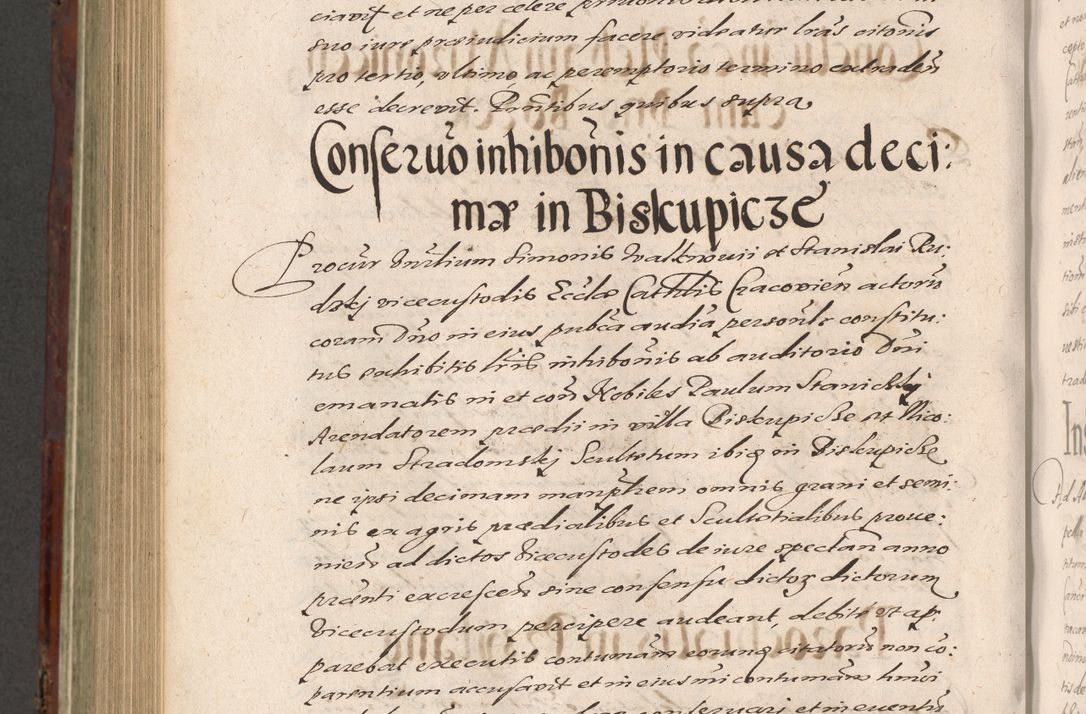 suo iure præiudicium facere videatur lr̃as citonis
pro tertio, ultimo, ac peremptorio termino extraden̄
esse decrevit. Pn̄tibus quibus supra
Conseruõ inhibõnis in causa deci:
mæ in Biskupicze
Procur Vnrlium Simonis Walknouii et Stanislai Ru:
dzkj vicecustodis Eccl̃æ Cathtlis Cracovien̄ actoris
coram Dño in eius publ̃ca audiã personlr constitu:
tus exhibitis lr̃is inhibõnis ab auditorio Dñi
emanatis in et con̄ Nobiles Paulum Stanickkj
Arendatorem prædii in villa Biskupicze et Nico:
laum Stradomskj Scultetum ibiq in Biskupicze
ne ipsi decimam manplrem omnis grani et semi:
nis ex agris prædialibus et Scultetialibus proue:
nien̄ ad dictos Vicecustodes de iure spectan̄ anno
præn̄ti excrescen̄ sine consensu dictoꝝ dictorum
Vicecustodum percipere audeant, debite vt ap:
parebat executis contumãm eorunq citatorũ non cõ:
parentium accusavit et in eius mi contumãm hmoi